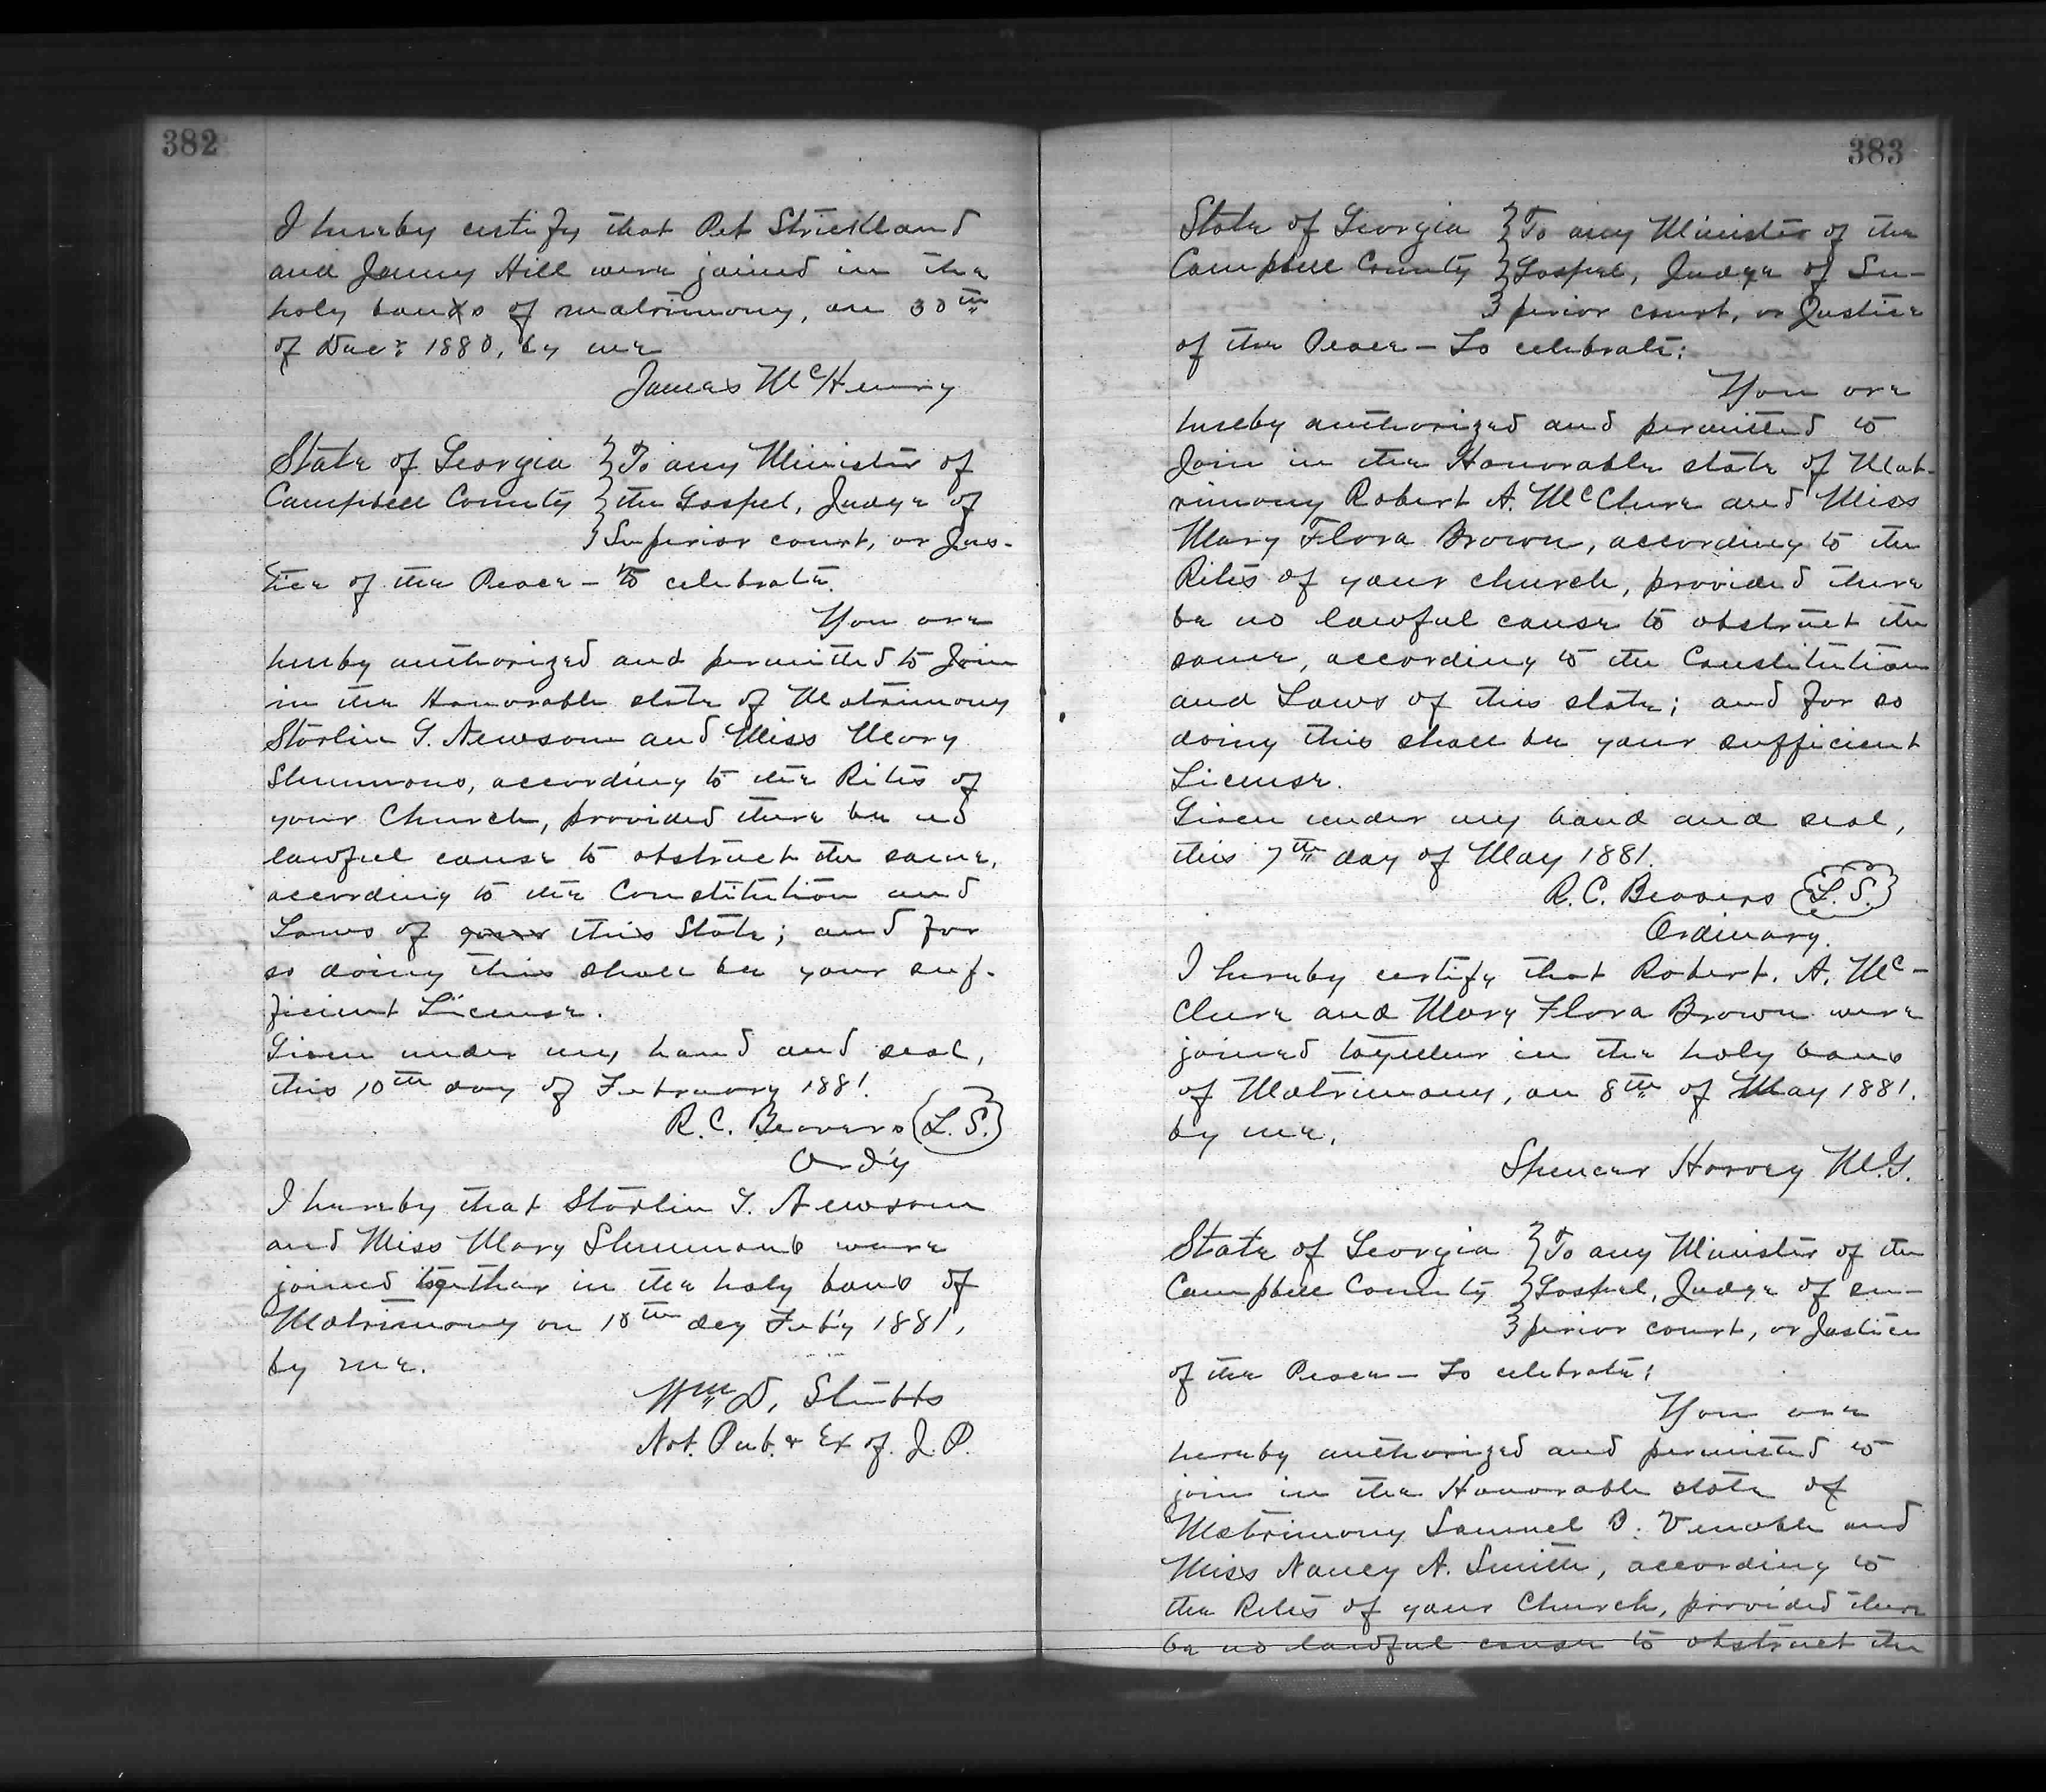 382
I hereby certify that Pet Strickland
and Janny Hill were joined in the
holy bands of matrimony, on 30th
of Decr 1880, by me
James McHenry
State of Georgia } To any Minister of
Campbell County } the Gospel, Judge of
} Superior court, or Jus-
tice of the Peace - to celebrate.
You are
hereby authorized and permitted to Join
in the Honorable state of Matrimony
Storlin G. Newsom and Miss Mary
Shummons, according to the Rites of
your Church, provided there be no
lawful cause to obstruct the same,
according to the Constitution and
Laws of your this State; and for
so doing this shall be your suf-
ficient License.
Given under my hand and seal,
this 10th day of February 1881.
R. C. Beavers (L. S.)
Ord'y
I hereby that Storlin G. Newsom
and Miss Mary Shummons were
joined together in the holy bans of
Matrimony on 10th dey Feb'y 1881,
by me.
Wm D. Stubbs
Not. Pub. & Ex of. J. P.
383
State of Georgia } To any Minister of the
Campbell County } Gospel, Judge of Su-
} perior court, or Justice
of the Peace - To celebrate:
You are
hereby authorized and permitted to
Join in the Honorable state of Mat-
rimony Robert A. McClure and Miss
Mary Flora Brown, according to the
Rites of your church, provided there
be no lawful cause to obstruct the
same, according to the Constitution
and Laws of this state; and for so
doing this shall be your sufficient
License.
Given under my hand and seal,
this 7th day of May 1881.
R. C. Beavers (L. S.)
Ordinary.
I hereby certify that Robert. A. Mc-
Clure and Mary Flora Brown were
joined together in the holy bans
of Matrimony, on 8th of May 1881.
by me.
Spencer Harvey M.G.
State of Georgia } To any Minister of the
Campbell County } Gospel, Judge of su-
} perior court, or Justice
of the Peace - To celebrate:
You are
hereby authorized and permitted to
join in the Honorable state of
Matrimony Samuel B. Venable and
Miss Nancy A. Smith, according to
the Rites of your Church, provided there
be no lawful cause to obstruct the